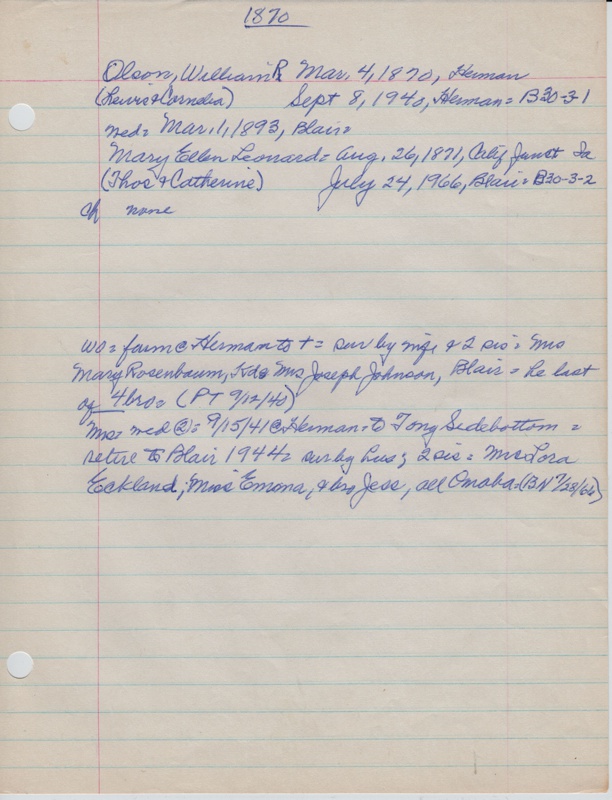 1870
Olson, William R Mar. 4, 1870, Herman
(Lewis & Cornelia) Sept 8, 1940, Herman = B30-3-1
wed = Mar. 1, 1893, Blair =
Mary Ellen Leonard = Aug. 26, 1871, Calif Junct Ia
(Thos & Catherine) July 24, 1966, Blair = B30-3-2
ch none
wo = farm @ Herman to + = sur by wife & 2 sis = Mrs
Mary Rosenbaum, & Mrs Joseph Johnson, Blair = he last
of 4 bro = (PT 9/12/40)
Mrs = wed (2) = 9/15/41 @ Herman = to Tony Sidebottom =
retire to Blair 1944 = sur by hus; 2 sis = Mrs Lora
Eckland, Miss Emona, & bro Jess, all Omaha = (BN